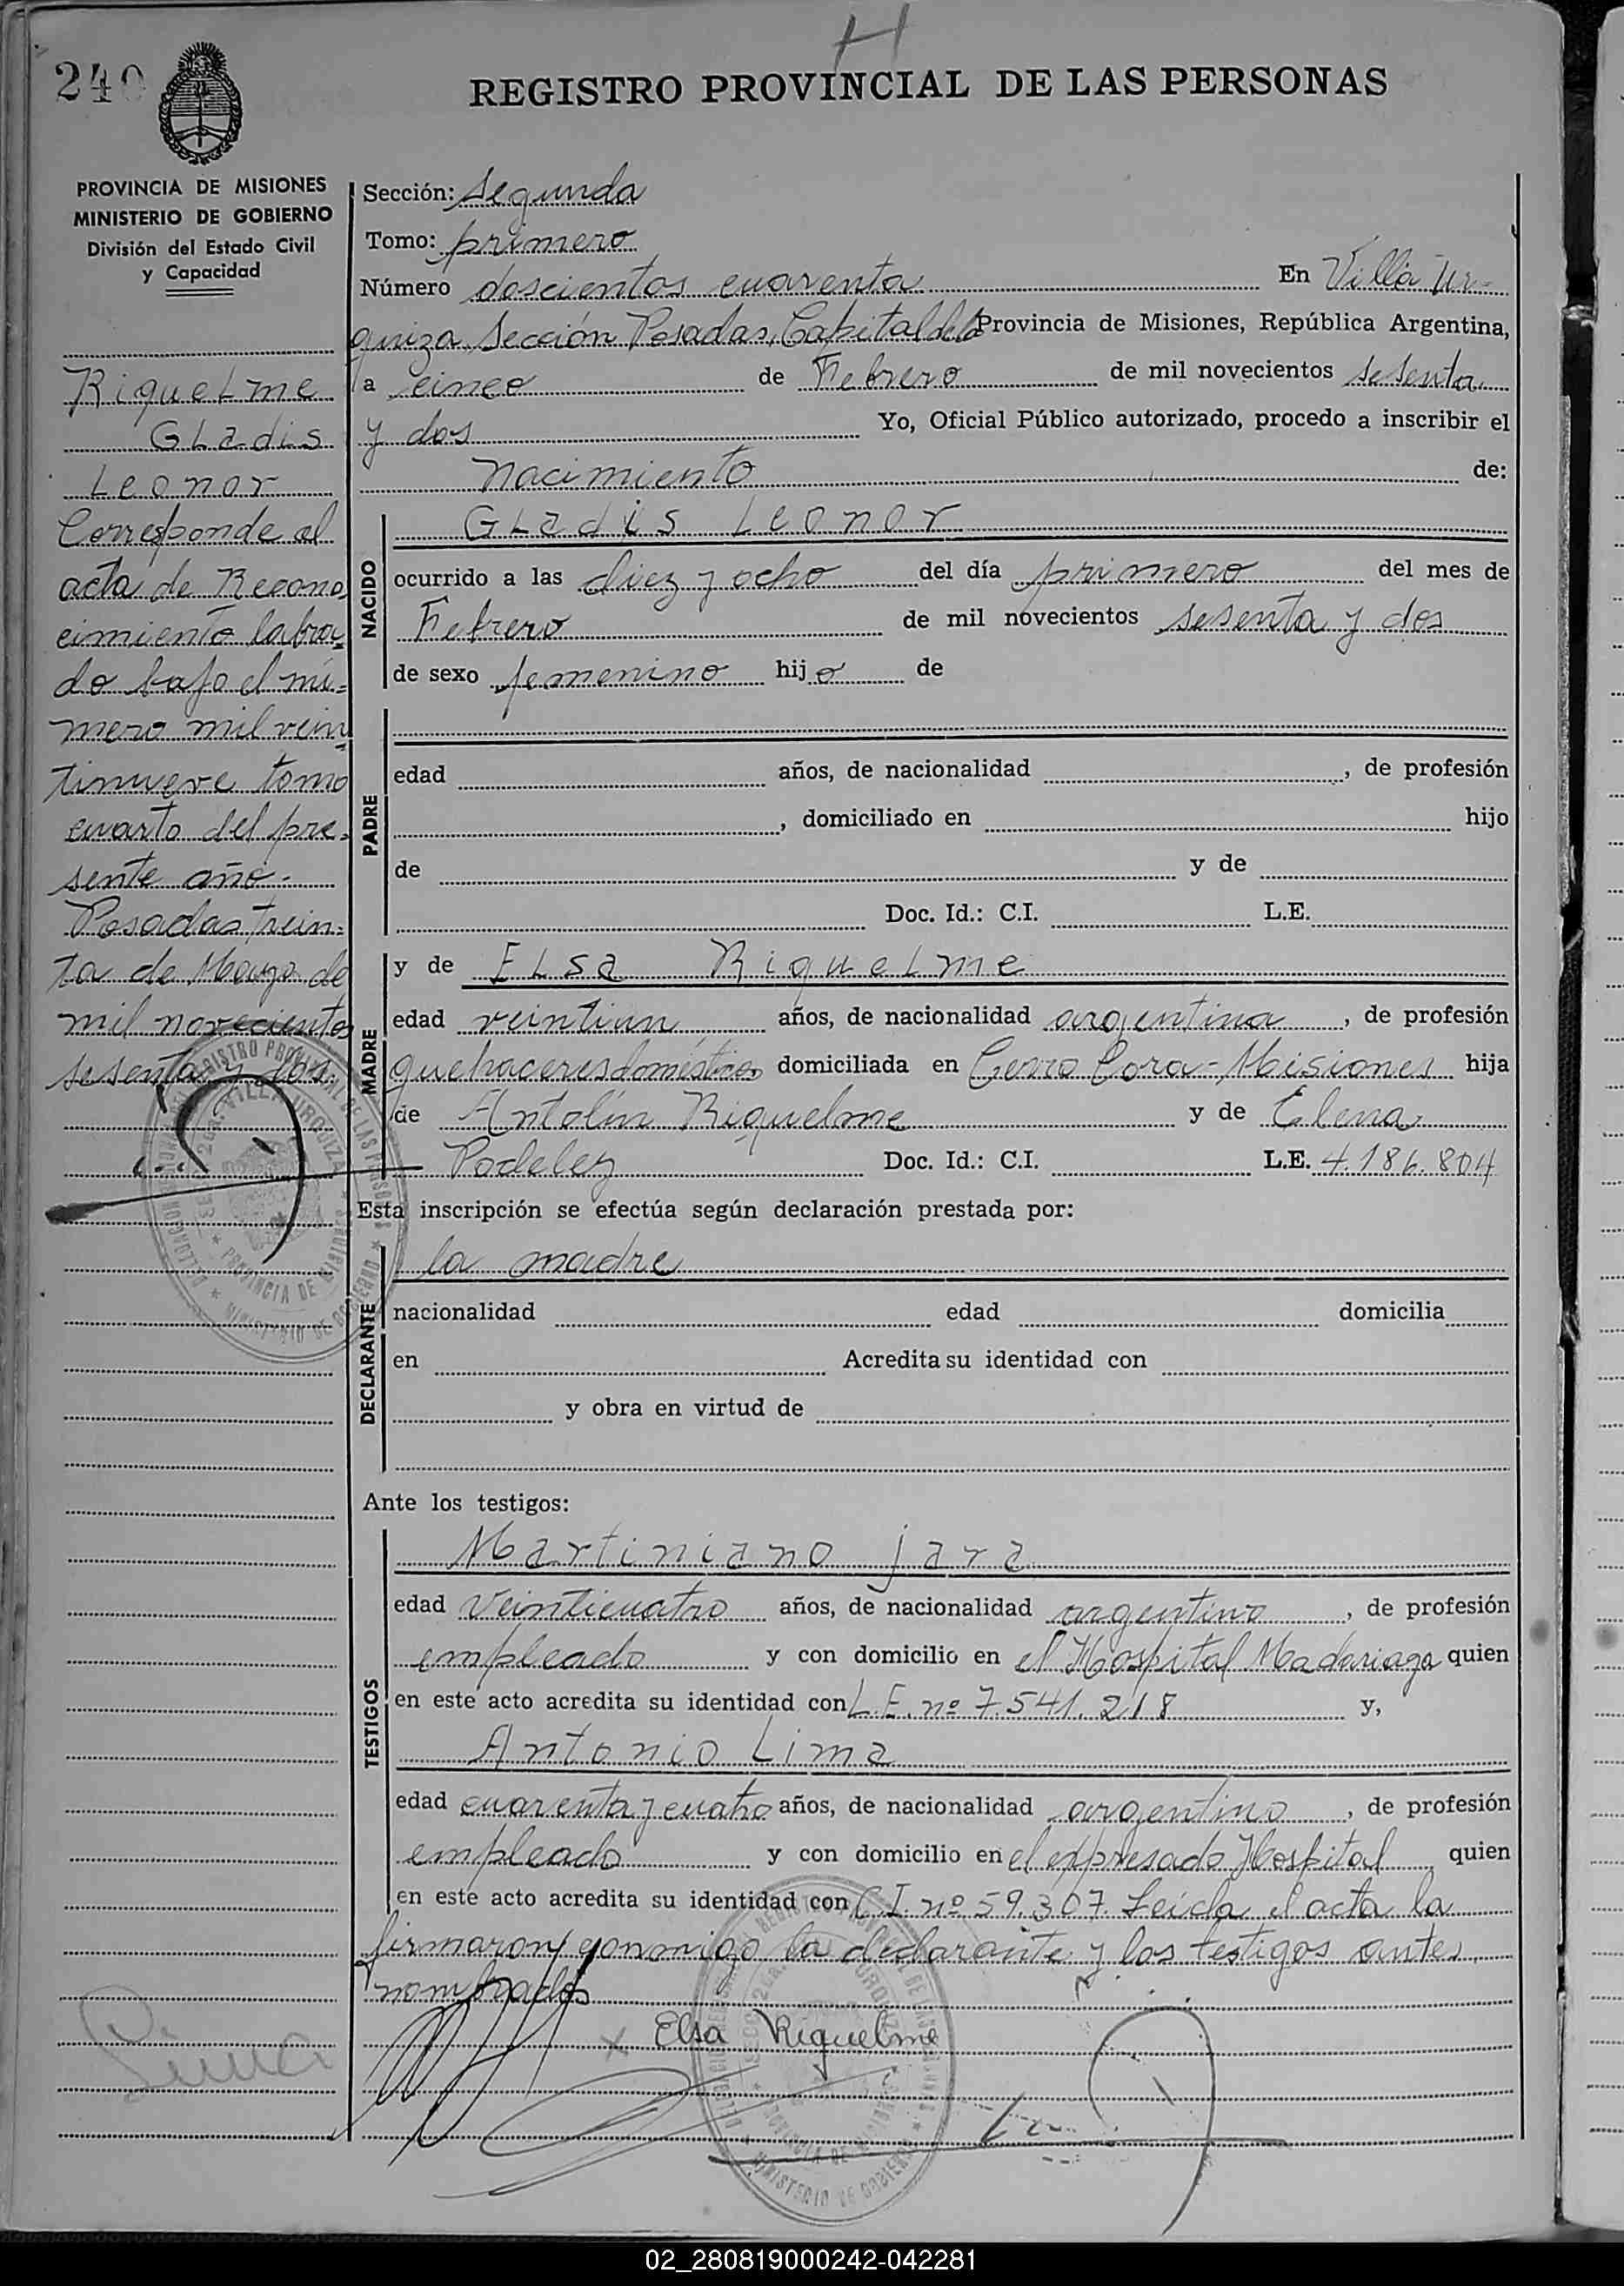 H
240
REGISTRO PROVINCIAL DE LAS PERSONAS
PROVINCIA DE MISIONES
MINISTERIO DE GOBIERNO
División del Estado Civil
y Capacidad
Riquelme
Gladis
Leonor
Corresponde al
acta de Recono
cimiento labra-
do bajo el nú-
mero mil vein
tinueve tomo
cuarto del pre-
sente año.-
Posadas, trein-
ta de Marzo de
mil novecientos
sesenta y dos.
Sección: Segunda
Tomo: primero
Número doscientos cuarenta En Villa Ur-
quiza Sección Posadas, Capital de la Provincia de Misiones, República Argentina,
a cinco de Febrero de mil novecientos sesenta
y dos Yo, Oficial Público autorizado, procedo a inscribir el
nacimiento de:
NACIDO
Gladis Leonor
ocurrido a las diez y ocho del día primero del mes de
Febrero de mil novecientos sesenta y dos
de sexo femenino hij a de
PADRE
edad años, de nacionalidad , de profesión
, domiciliado en hijo
de y de
Doc. Id.: C.I. L.E.
MADRE
y de Elsa Riquelme
edad veintiun años, de nacionalidad argentina, de profesión
quehaceres domésticos domiciliada en Cerro Cora - Misiones hija
de Antolín Riquelme y de Elena
Podeley Doc. Id.: C.I. L.E. 4.186.804
Esta inscripción se efectúa según declaración prestada por:
DECLARANTE
la madre
nacionalidad edad domicilia
en Acredita su identidad con
y obra en virtud de
Ante los testigos:
TESTIGOS
Martiniano Jara
edad veinticuatro años, de nacionalidad argentino, de profesión
empleado y con domicilio en el Hospital Madariaga quien
en este acto acredita su identidad con L.E. nº 7.541.218 y,
Antonio Lima
edad cuarenta y cuatro años, de nacionalidad argentino, de profesión
empleado y con domicilio en el expresado Hospital quien
en este acto acredita su identidad con C.I. nº 59.307. Leída el acta la
firmaron conmigo la declarante y los testigos antes
nombrados
x Elsa Riquelme
02_280819000242-042281